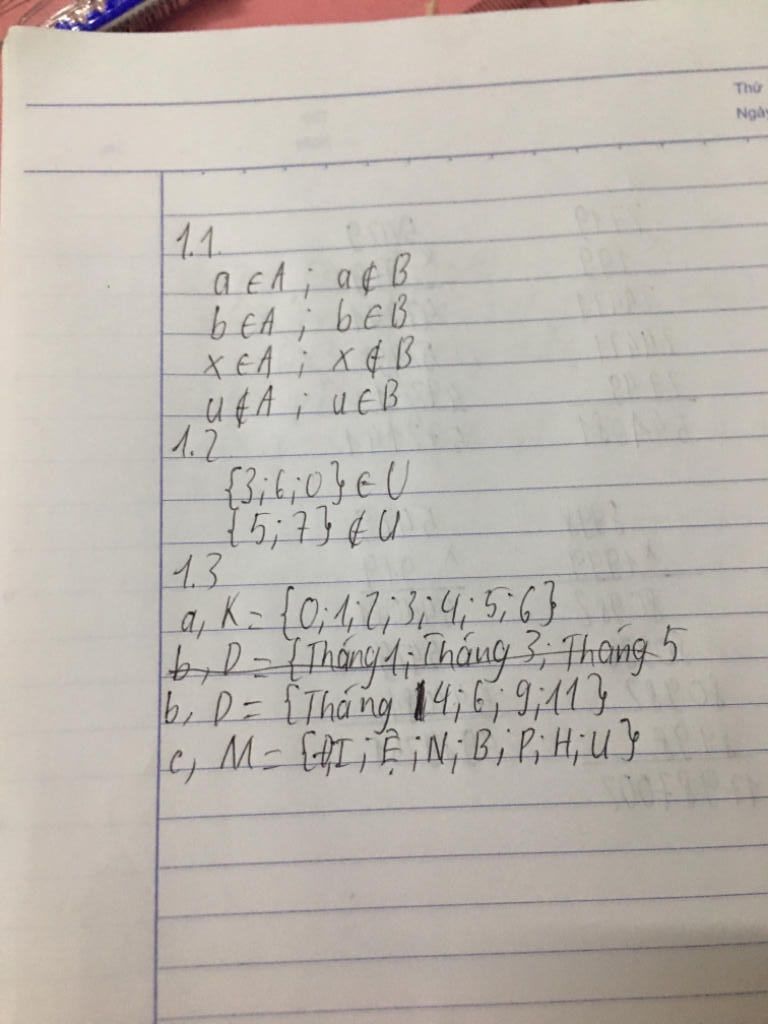 Thứ
Ngày
1.1.
a ∈ A ; a ∉ B
b ∈ A ; b ∈ B
x ∈ A ; x ∉ B
u ∉ A ; u ∈ B
1.2
{3;6;0} ∈ U
{5;7} ∉ U
1.3
a, K = {0;1;2;3;4;5;6}
b, D = {Tháng 1; Tháng 3; Tháng 5
b, D = {Tháng 4; 6; 9; 11}
c, M = {Đ;I; Ệ; N; B; P; H; U}